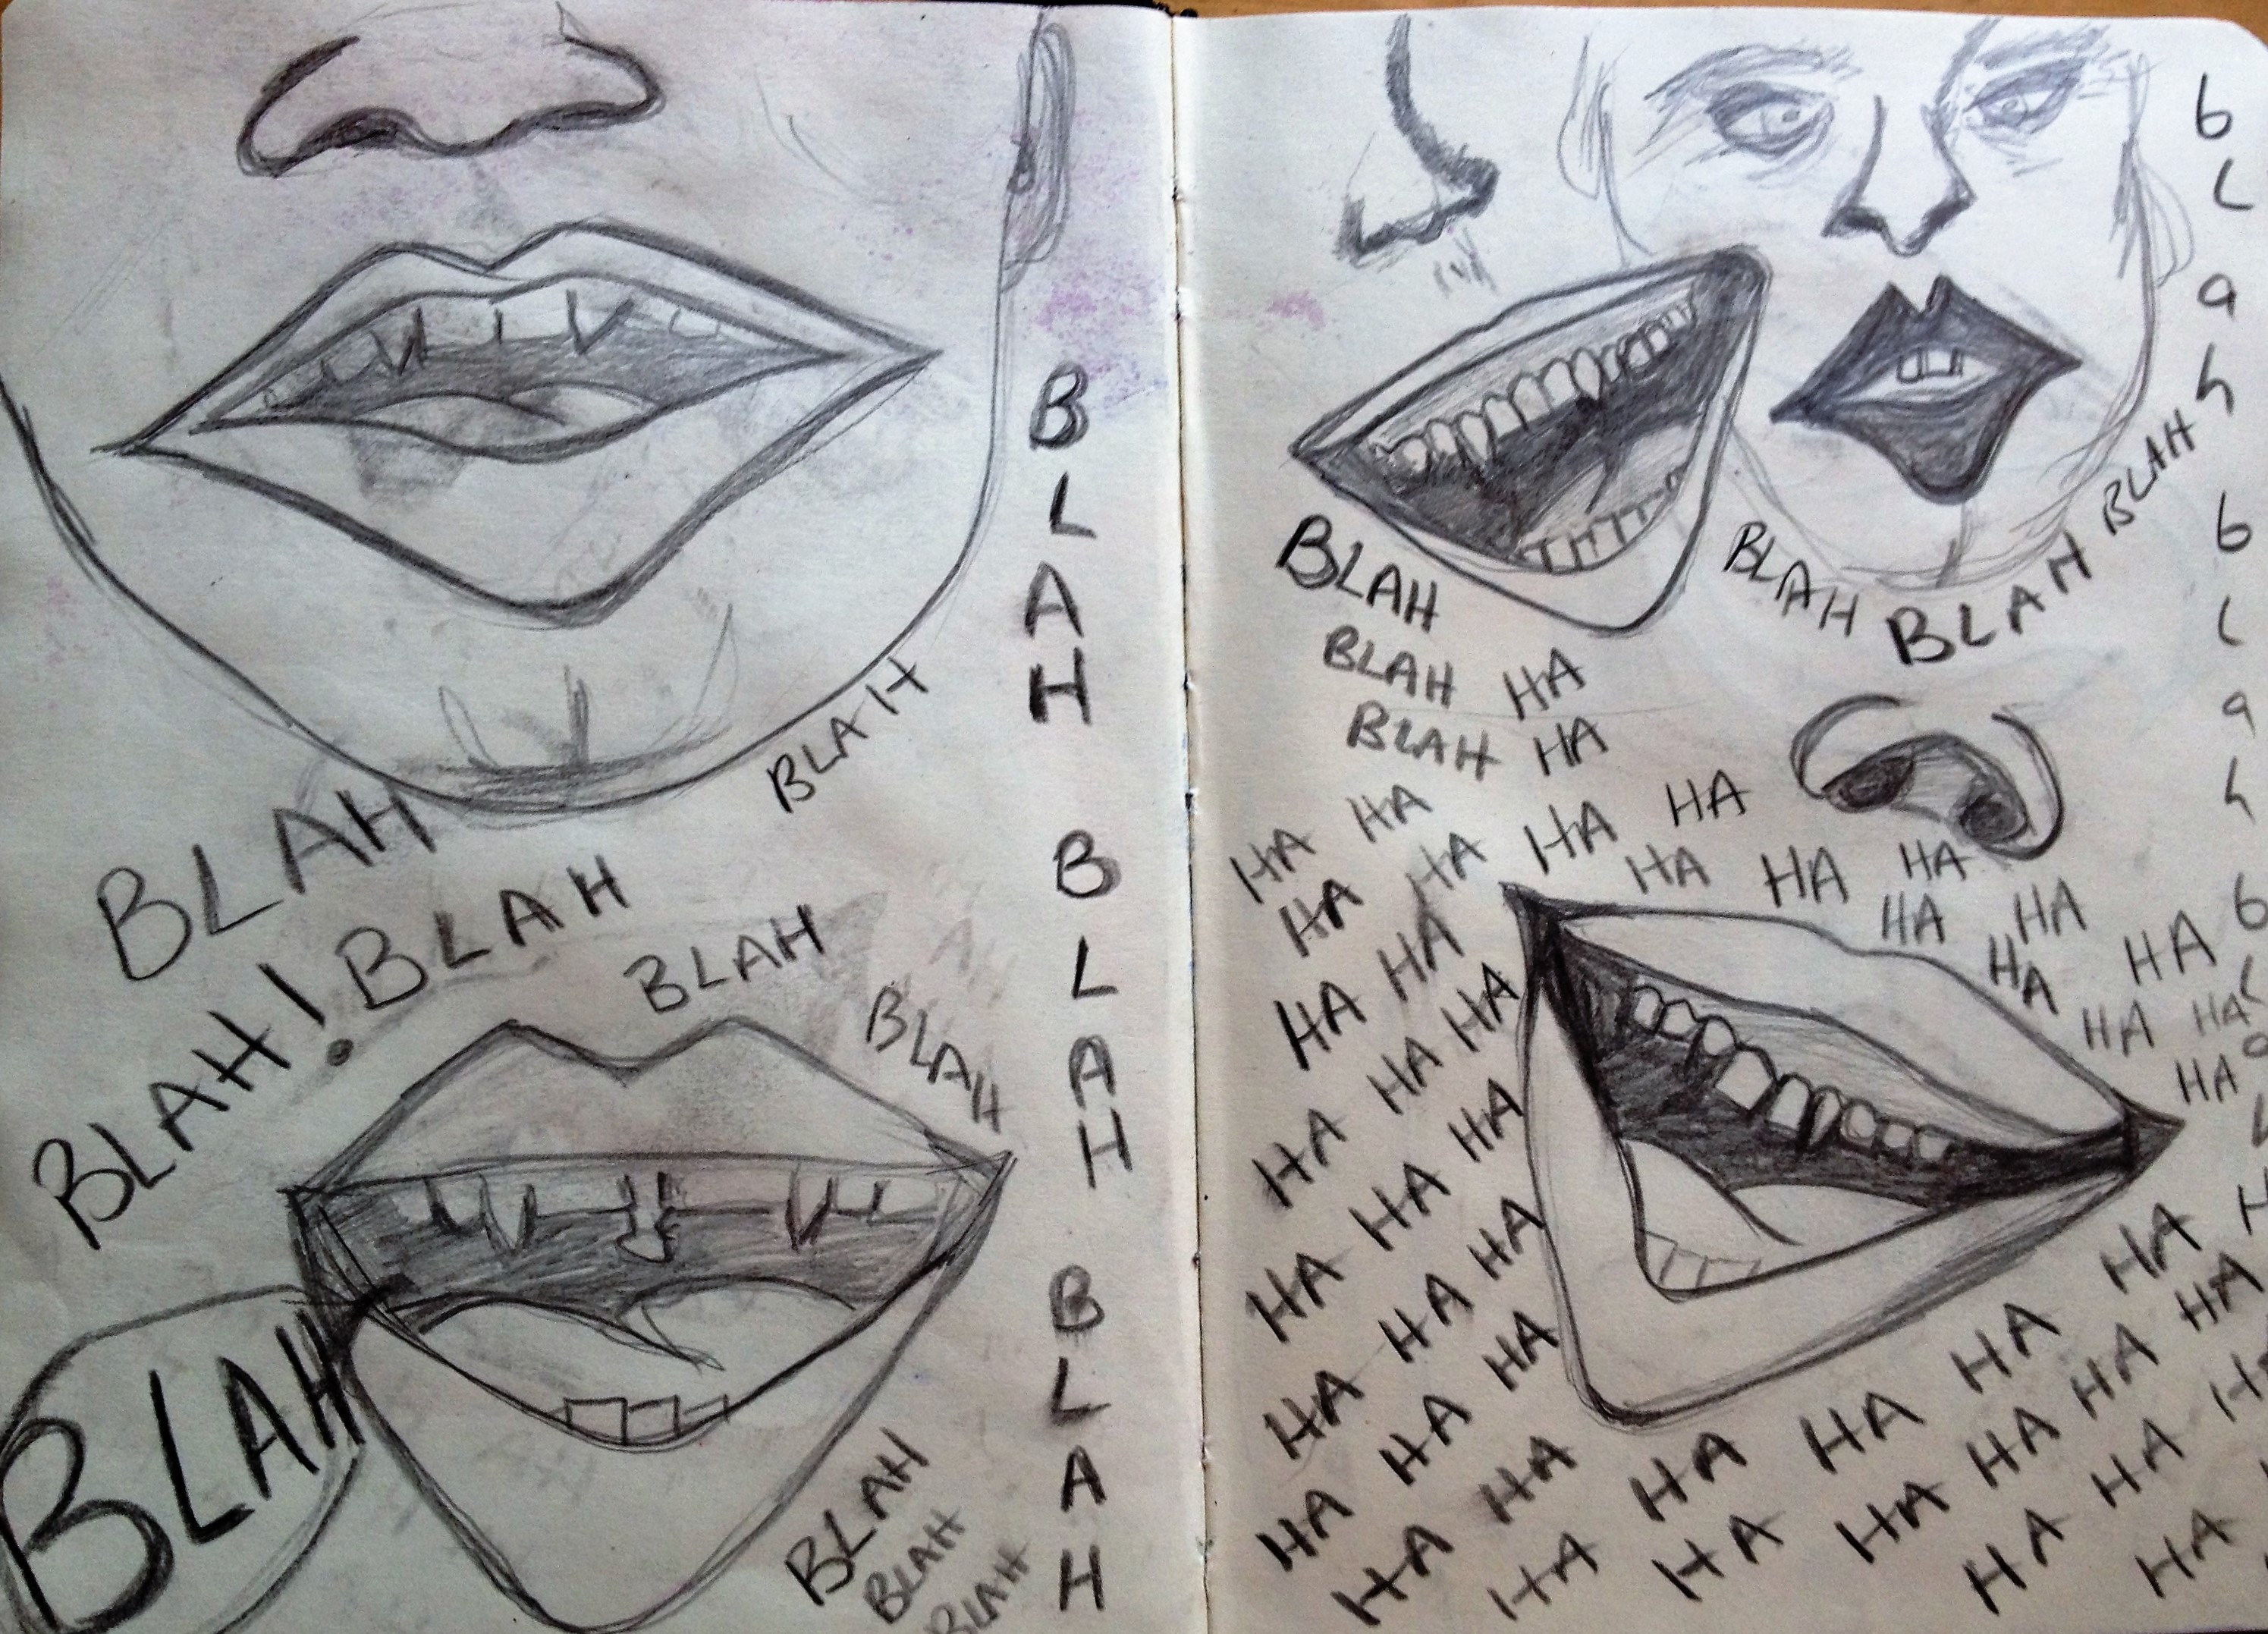 BLAH
BLAH
BLAH
BLAH!
BLAH
BLAH
BLAH
BLAH
BLAH
BLAH
BLAH
BLAH
BLAH
BLAH
BLAH
BLAH
BLAH
BLAH
blah
blah
BLAH HA
BLAH HA
HA HA
HA HA HA HA
HA HA HA
HA HA
HA HA
HA HA
HA HA HA
HA HA
HA HA HA
HA
HA HA HA
HA HA HA
HA HA HA
HA HA HA HA HA HA
HA HA HA HA HA HA
HA HA HA
HA